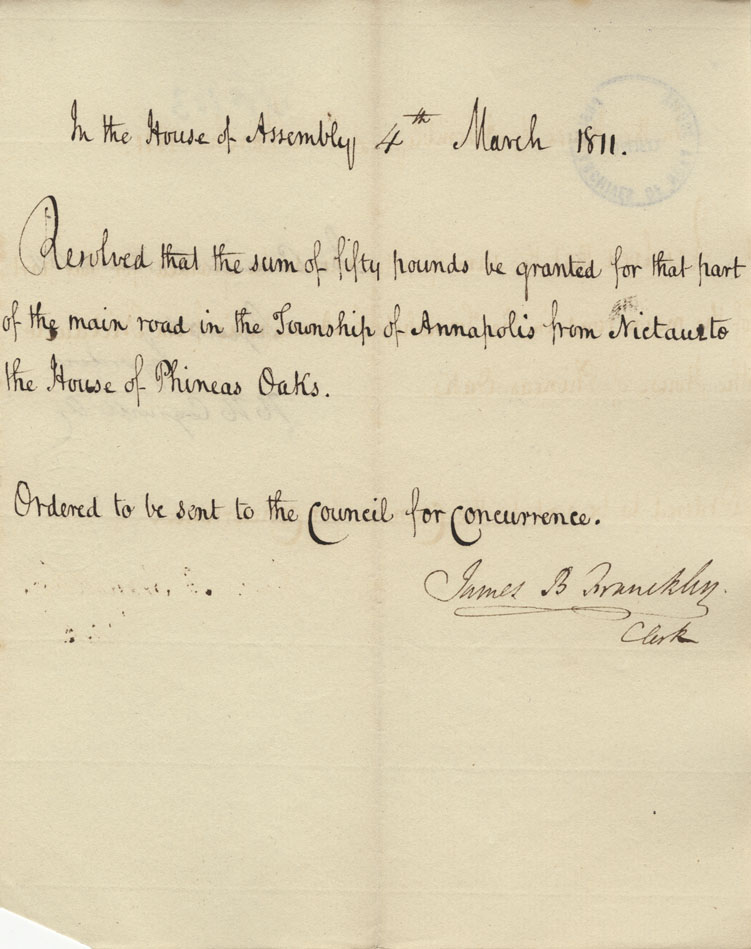 In the House of Assembly 4th March 1811.
Resolved that the sum of fifty pounds be granted for that part
of the main road in the Township of Annapolis from Nictau to
the House of Phineas Oaks.
Ordered to be sent to the Council for Concurrence.
James B Franckly.
Clerk